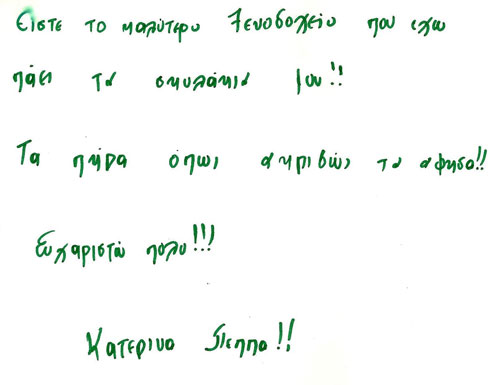 Είστε το καλύτερο ξενοδοχείο που εχω
πάει τα σκυλάκια μου!!
Τα πήρα όπως ακριβώς τα αφησα!!
Ευχαριστώ πολυ!!!
Κατερινα Πεππα!!